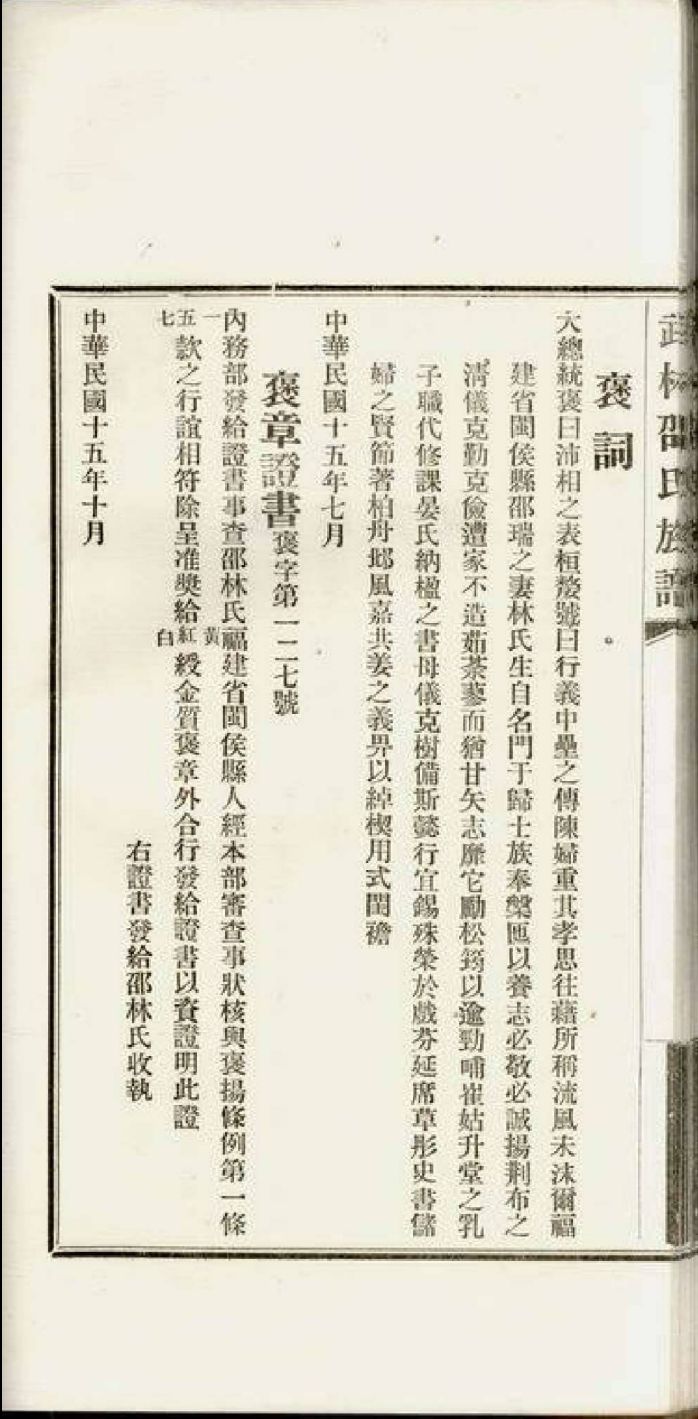 武林邵氏族譜
褒詞
大總統褒曰沛相之表桓嫠號曰行義中壘之傳陳婦重其孝思往藉所稱流風未沫爾福
建省閩侯縣邵瑞之妻林氏生自名門于歸士族奉槃匜以養志必敬必誠揚荆布之
淸儀克勤克儉遭家不造茹荼蓼而猶甘矢志靡它勵松筠以逾勁哺崔姑升堂之乳
子職代修課晏氏納楹之書母儀克樹備斯懿行宜錫殊榮於戲芬延席草彤史書儲
婦之賢節著柏舟鄁風嘉共姜之義畀以綽楔用式閨襜
中華民國十五年七月
褒章證書褒字第一二七號
內務部發給證書事查邵林氏福建省閩侯縣人經本部審查事狀核與褒揚條例第一條
一五七款之行誼相符除呈准奬給黃紅白綬金質褒章外合行發給證書以資證明此證
右證書發給邵林氏收執
中華民國十五年十月